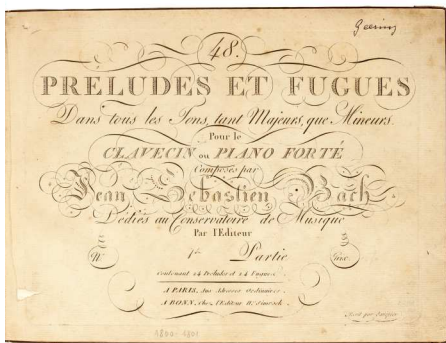 48.
PRELUDES ET FUGUES
Dans tous les Tons, tant Majeurs, que Mineurs.
Pour le
CLAVECIN ou PIANO FORTÉ
Composés par
Jean Sebastien Bach
Dédiés au Conservatoire de Musique
Par l'Editeur
N.º 1.re Partie Prix
Contenant 24 Preludes et 24 Fugues.
A PARIS, Aux Adresses Ordinaires.
A BONN, Chez l'Editeur N. Simrock.
1800-1801